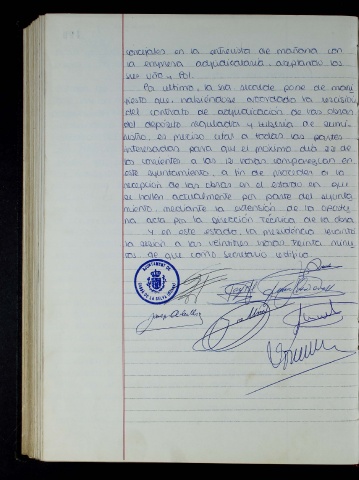 concejales en la entrevista de mañana con
la empresa adjudicataria, aceptando los
Por último, la Sra. Alcalde pone de mani
fiesto que habiéndose acordado la rescisión
del contrato de adjudicación de las obras
del depósito regulador y tubería de sumi
nistro, es preciso citar a todas las partes
interesadas para que el próximo día 22 de
los corrientes a las 12 horas comparezcan en
este ayuntamiento, a fin de proceder a la
recepción de las obras en el estado en que
se hallen actualmente por parte del ayunta
miento, mediante la extensión de la oportu
na acta por la Dirección Técnica de la obra.
Y en este estado, la presidencia levanta
la sesión a las veintitrés horas treinta minu
tos, de que como secretario certifico.
AJUNTAMENT DE